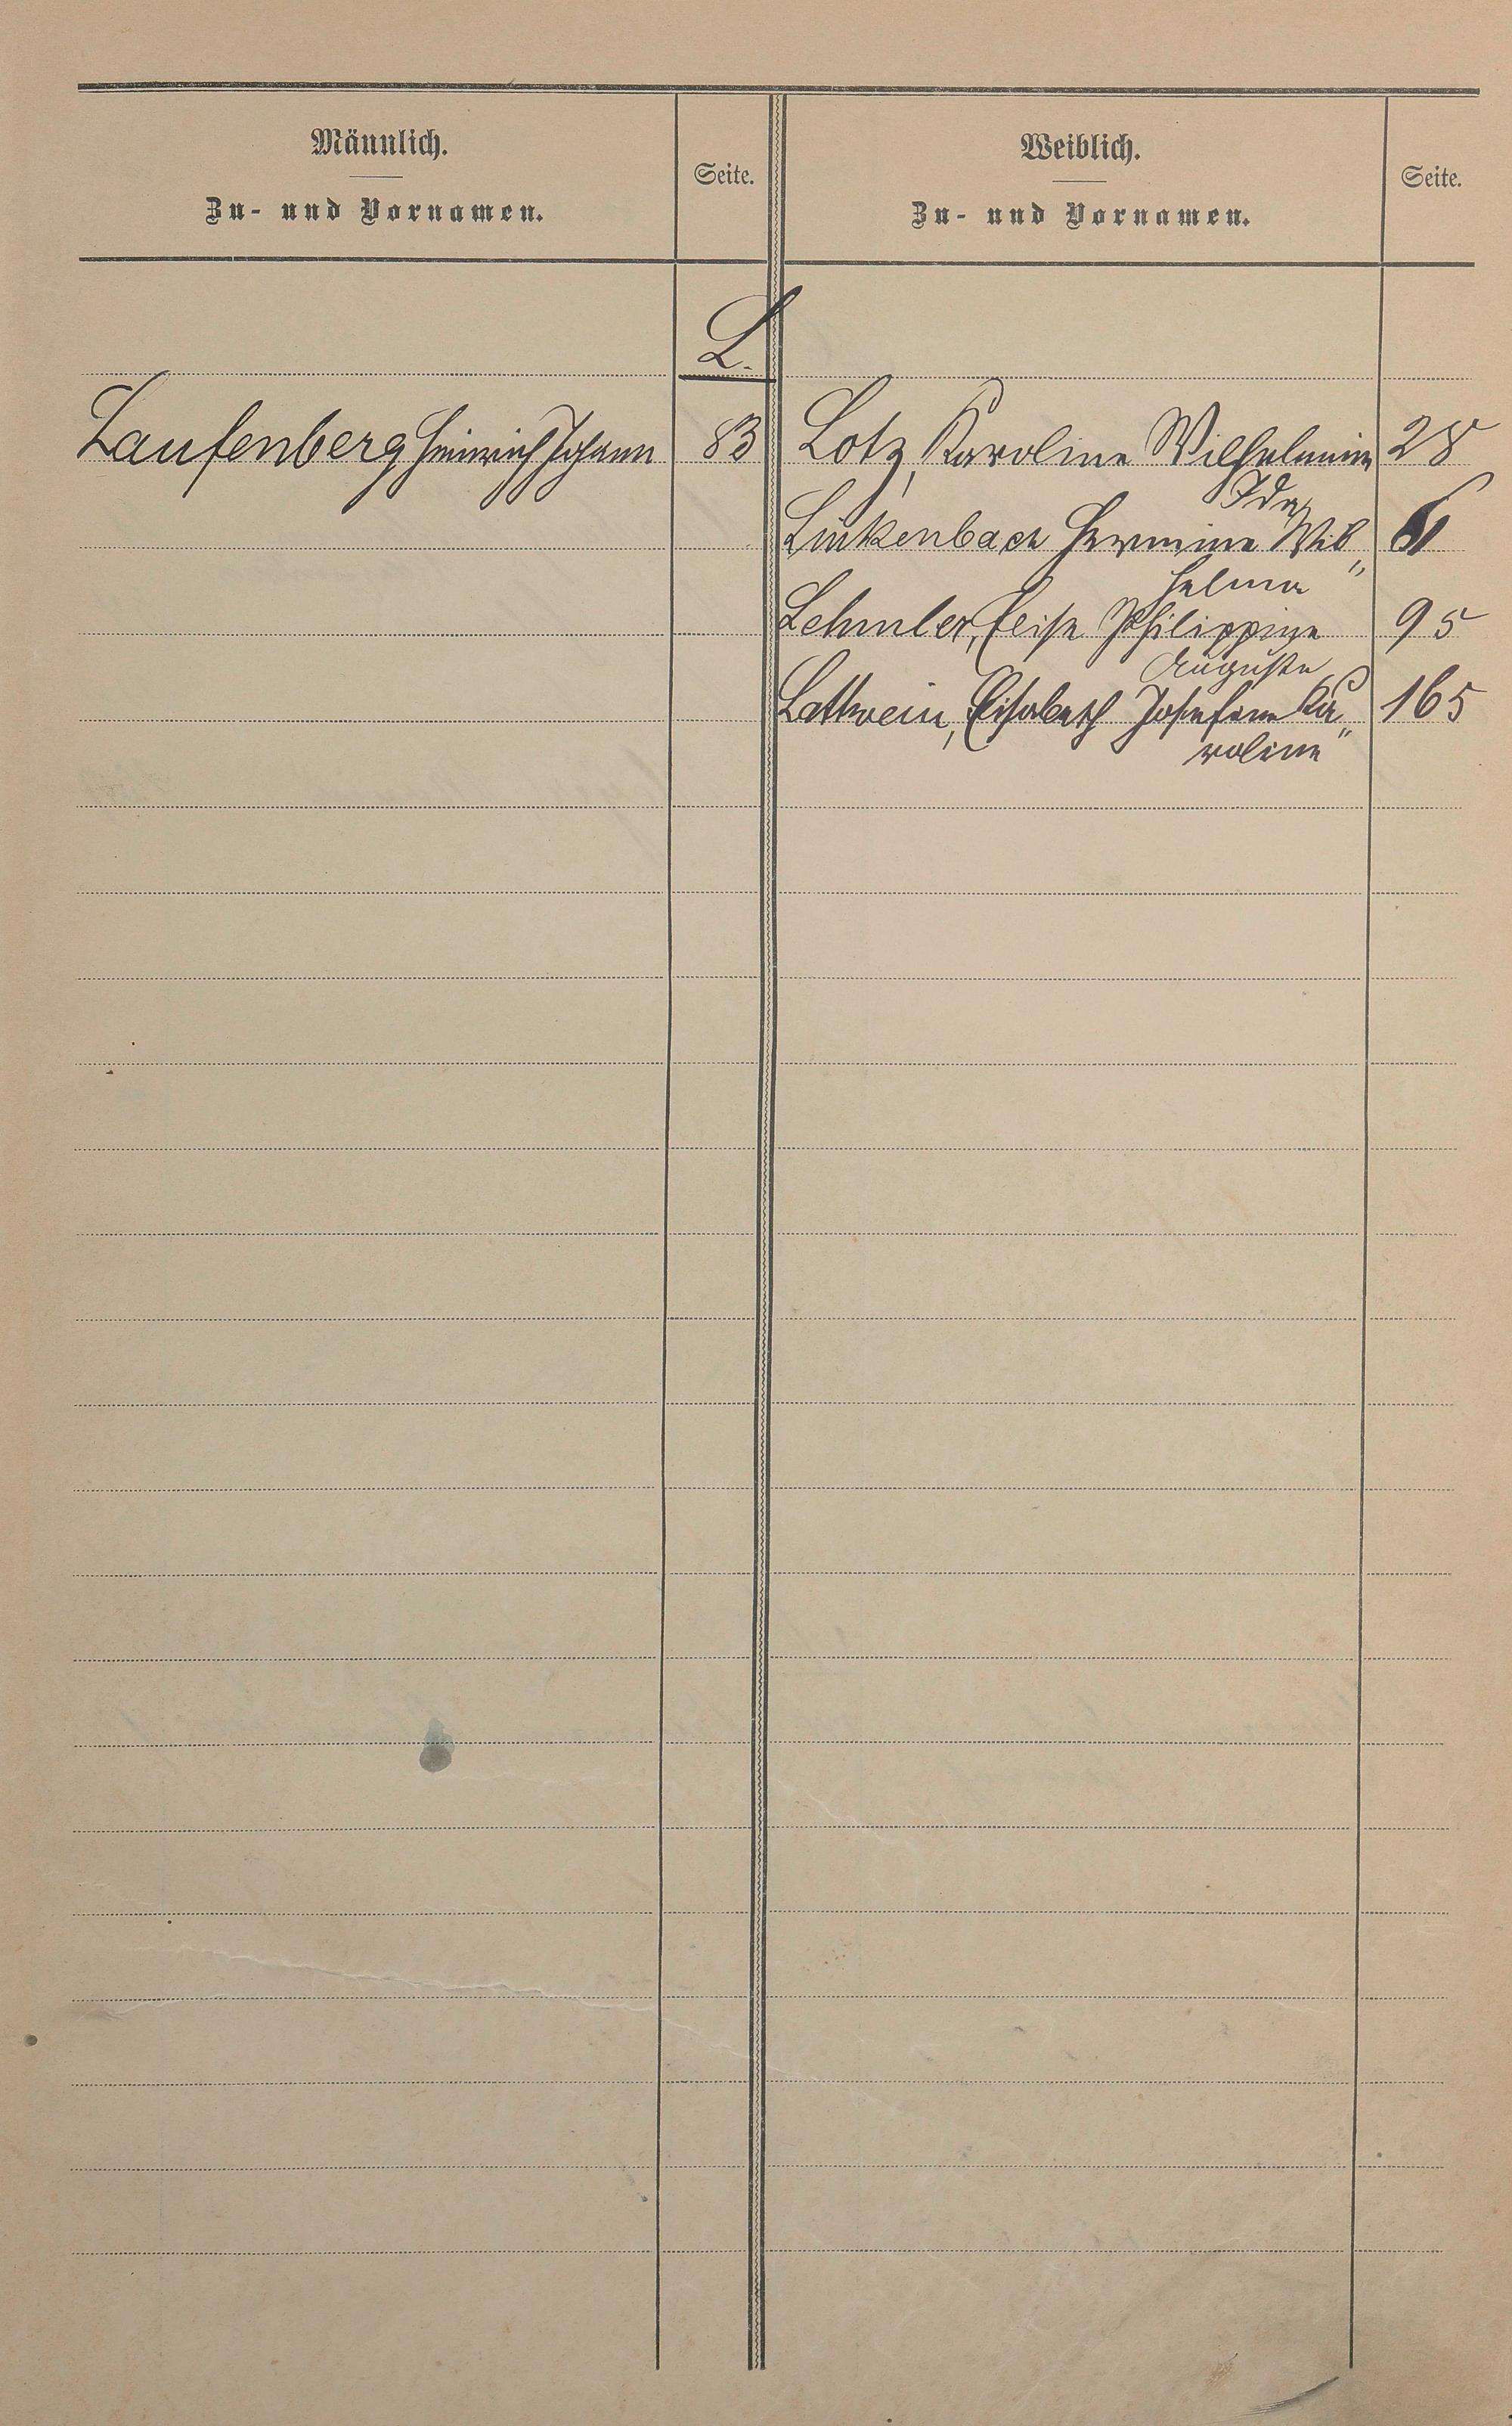 Männlich.
Zu- und Vornamen.
Seite.
Weiblich.
Zu- und Vornamen.
Seite.
L.
Laufenberg Heinrich Johann 83
Lotz, Karoline Wilhelmine 28
Ida
Linkenbach Hermine Wil„
helma
Lehmler, Elise Philippine 95
Auguste
Lattwein, Elisabeth Josefine Ka„ 165
roline